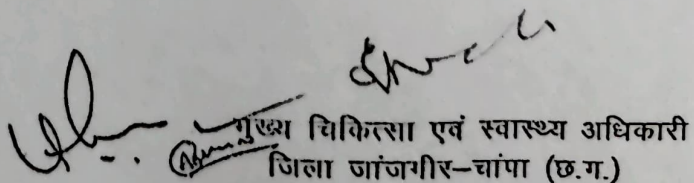 मुख्य चिकित्सा एवं स्वास्थ्य अधिकारी
जिला जांजगीर-चांपा (छ.ग.)